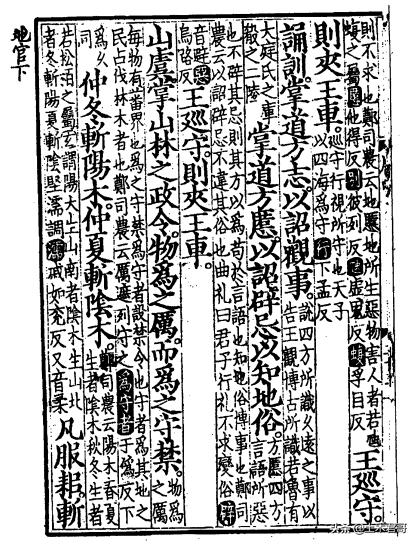 則不求也鄭司農云地慝地所生惡物害人者若虺
蝮之屬慝他得反別彼列反虺虛鬼反蝮孚目反
王巡守。
則夾王車。
巡守行視所守也天子
以四海爲守行下孟反
誦訓。掌道方志以詔觀事。
說四方所識久遠之事以
告王觀博古所識若魯有
大庭氏之庫
殽之二陵
掌道方慝以詔辟忌以知地俗。
方慝四方
言語所惡
也不辟其忌則其方以爲苟於言語也知地俗博事也鄭司
農云以詔辟忌不違其俗也曲禮曰君子行禮不求變俗辟
音避惡
烏路反
王巡守。則夾王車。
山虞掌山林之政令。物爲之厲。而爲之守禁。
物爲
之厲
每物有蕃界也爲之守禁爲守者設禁令也守者謂其地之
民占伐林木者也鄭司農云厲遮列守之爲守者于僞反下
仲冬斬陽木。仲夏斬陰木。
鄭司農云陽木春夏
生者陰木秋冬生者
若松柏之屬玄謂陽木生山南者陰木生山北
者冬斬陽夏斬陰堅濡調濡戚如兖反又音柔
凡服耜。斬
地官下